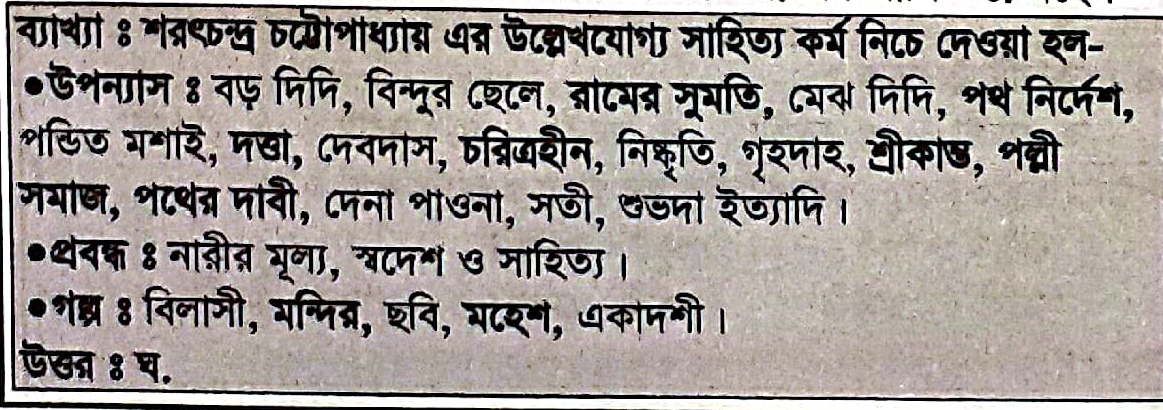 ব্যাখ্যা ঃ শরৎচন্দ্র চট্টোপাধ্যায় এর উল্লেখযোগ্য সাহিত্য কর্ম নিচে দেওয়া হল-
●উপন্যাস ঃ বড় দিদি, বিন্দুর ছেলে, রামের সুমতি, মেঝ দিদি, পথ নির্দেশ,
পন্ডিত মশাই, দত্তা, দেবদাস, চরিত্রহীন, নিষ্কৃতি, গৃহদাহ, শ্রীকান্ত, পল্লী
সমাজ, পথের দাবী, দেনা পাওনা, সতী, শুভদা ইত্যাদি।
●প্রবন্ধ ঃ নারীর মূল্য, স্বদেশ ও সাহিত্য।
●গল্প ঃ বিলাসী, মন্দির, ছবি, মহেশ, একাদশী।
উত্তর ঃ ঘ.